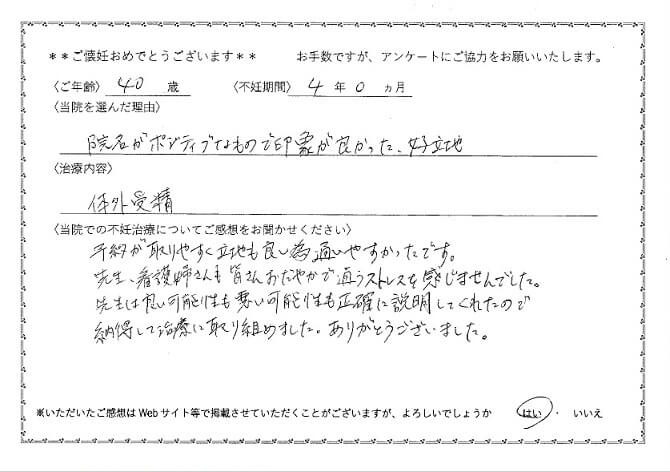 **ご懐妊おめでとうございます** お手数ですが、アンケートにご協力をお願いいたします。
〈ご年齢〉 40 歳 〈不妊期間〉 4 年 0 ヵ月
〈当院を選んだ理由〉
院名がポジティブなもので印象が良かった、好立地
〈治療内容〉
体外受精
〈当院での不妊治療についてご感想をお聞かせください〉
予約が取りやすく立地も良い為通いやすかったです。
先生、看護師さんも皆さんおだやかで通うストレスを感じませんでした。
先生は良い可能性も悪い可能性も正確に説明してくれたので
納得して治療に取り組めました。ありがとうございました。
※いただいたご感想はWebサイト等で掲載させていただくことがございますが、よろしいでしょうか はい ・ いいえ